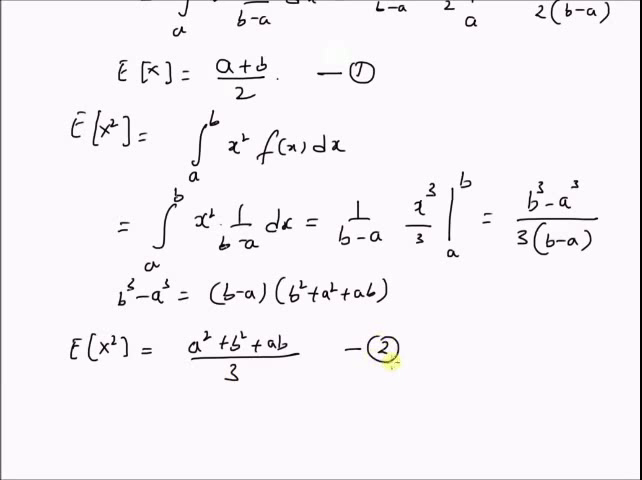 a b-a b-a 2 a 2(b-a)
E[x] = a+b/2. — ①
E[x²] = ∫_a^b x² f(x) dx
= ∫_a^b x² · 1/b-a dx = 1/b-a x³/3 |_a^b = b³-a³/3(b-a)
b³-a³ = (b-a)(b²+a²+ab)
E[x²] = a²+b²+ab/3 — ②